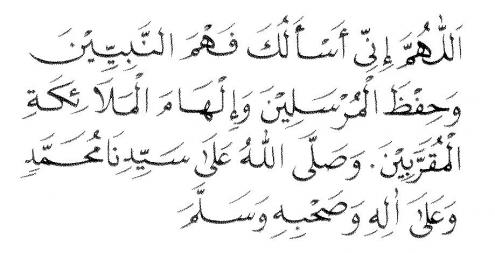 اَللّٰهُمَّ إِنِّي أَسْأَلُكَ فَهْمَ النَّبِيِّيْنَ
وَحِفْظَ الْمُرْسَلِيْنَ وَإِلْهَامَ الْمَلَائِكَةِ
الْمُقَرَّبِيْنَ. وَصَلَّى اللهُ عَلَى سَيِّدِنَا مُحَمَّدٍ
وَعَلَى اٰلِهِ وَصَحْبِهِ وَسَلَّمَ